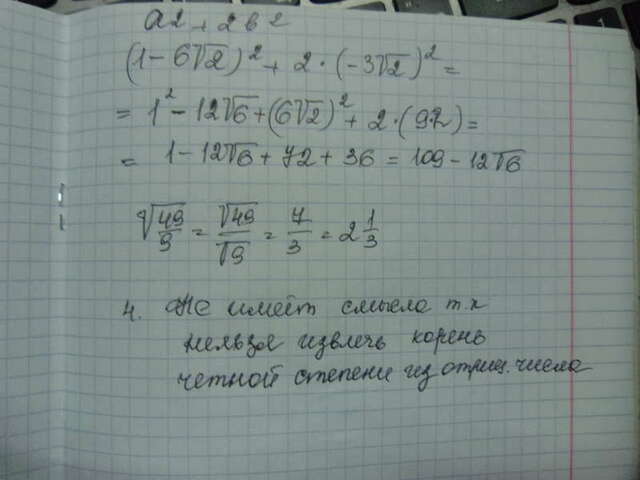 a2 + 2b2
(1 - 6√2)² + 2 · (-3√2)² =
= 1² - 12√6 + (6√2)² + 2 · (92) =
= 1 - 12√6 + 72 + 36 = 109 - 12√6
√49/9 = √49/√9 = 7/3 = 2 1/3
4. Не имеет смысла т.к
нельзя извлечь корень
четной степени из отриц. числа